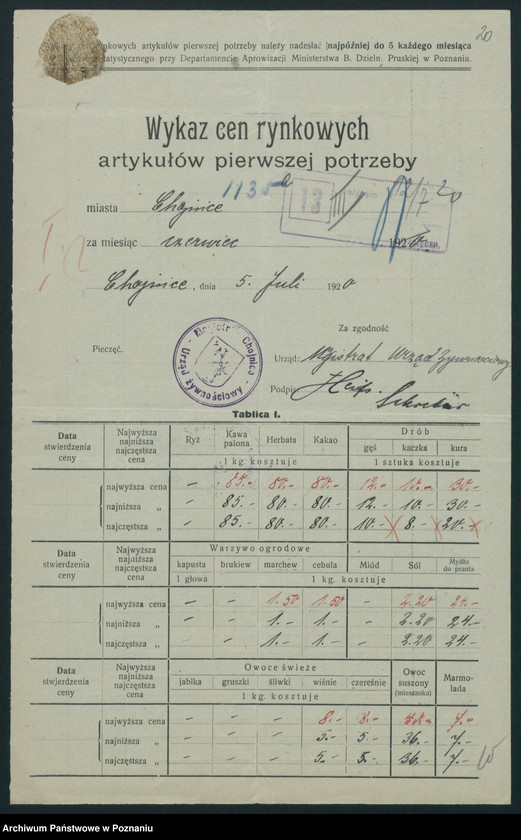 20
cen rynkowych artykułów pierwszej potrzeby należy nadesłać najpóźniej do 5 każdego miesiąca
statystycznego przy Departamencie Aprowizacji Ministerstwa B. Dzieln. Pruskiej w Poznaniu.
Wykaz cen rynkowych
artykułów pierwszej potrzeby
1135a
13
miasta Chojnice
za miesiąc czerwiec 1920
Chojnice, dnia 5. Juli 1920
Za zgodność
Pieczęć.
Urząd: Magistrat Urząd Żywnościowy
Podpis
Sekretär
Magistrat Chojnice - Urząd żywnościowy -
Tablica I.
Data stwierdzenia ceny Najwyższa najniższa najczęstsza cena Ryż Kawa palona Herbata Kakao Drób gęś kaczka kura
1 kg. kosztuje 1 sztuka kosztuje
najwyższa cena – 85.- 80.- 80.- 12.- 30.-
najniższa „ – 85.- 80.- 80.- 12.- 10.- 30.-
najczęstsza „ – 85.- 80.- 80.- 10.- 8.- 20.-
Data stwierdzenia ceny Najwyższa najniższa najczęstsza cena Warzywo ogrodowe kapusta brukiew marchew cebula Miód Sól Mydło do prania
1 głowa 1 kg. kosztuje
najwyższa cena – – 1.50 1.50 – 2.20
najniższa „ – – 1.- 1.- – 2.20 24.-
najczęstsza „ – – 1.- 1.- – 2.20 24.-
Data stwierdzenia ceny Najwyższa najniższa najczęstsza cena Owoce świeże jabłka gruszki śliwki wiśnie czereśnie Owoc suszony (mieszanka) Marmolada
1 kg. kosztuje
najwyższa cena – – – 8.- 8.- 7.-
najniższa „ – – – 5.- 5.- 36.- 7.-
najczęstsza „ – – – 5.- 5.- 36.- 7.-
Archiwum Państwowe w Poznaniu